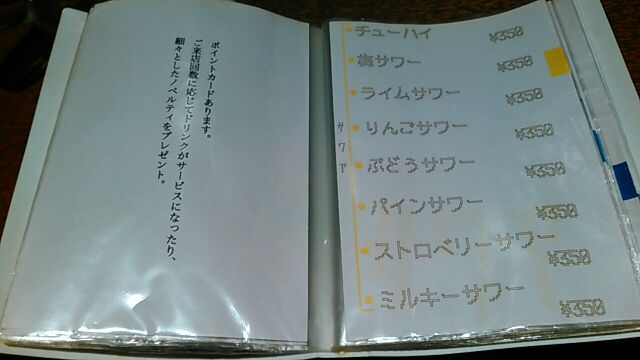 ポイントカードあります。
ご来店回数に応じてドリンクがサービスになったり、
細々としたノベルティをプレゼント。
サワア
チューハイ ¥350
梅サワー ¥350
ライムサワー ¥350
りんごサワー ¥350
ぶどうサワー ¥350
パインサワー ¥350
ストロベリーサワー ¥350
ミルキーサワー ¥350